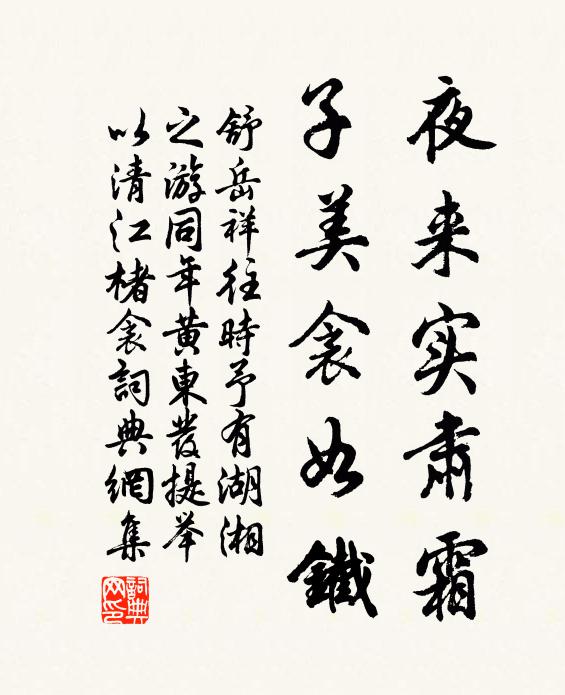 夜来实肃霜
子美衾如鐵
舒岳祥往時予有湖湘
之游同年黄東發提举
以清江楮衾詞典網集
詞典網印